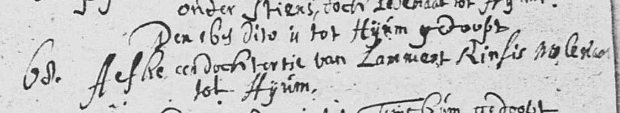 onder Stiens, doch
Den 16es Dito is tot Hijum gedoopt
68. Aefke een dochtertie van Lammert Rinsis molenaer
tot Hijum.
gedoopt